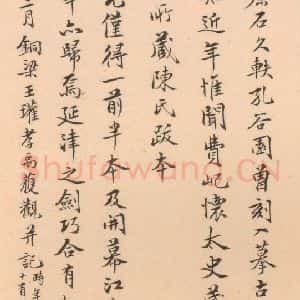 石久軼孔谷園曾刻入摹古
近年惟聞費屺懷太史
所藏陳氏跋本
僅得一前半本及開幕江
年亦歸焉延津之劍巧合有
二月銅梁王瓘孝禹獲觀并記時年
十有
Shufawang.CN